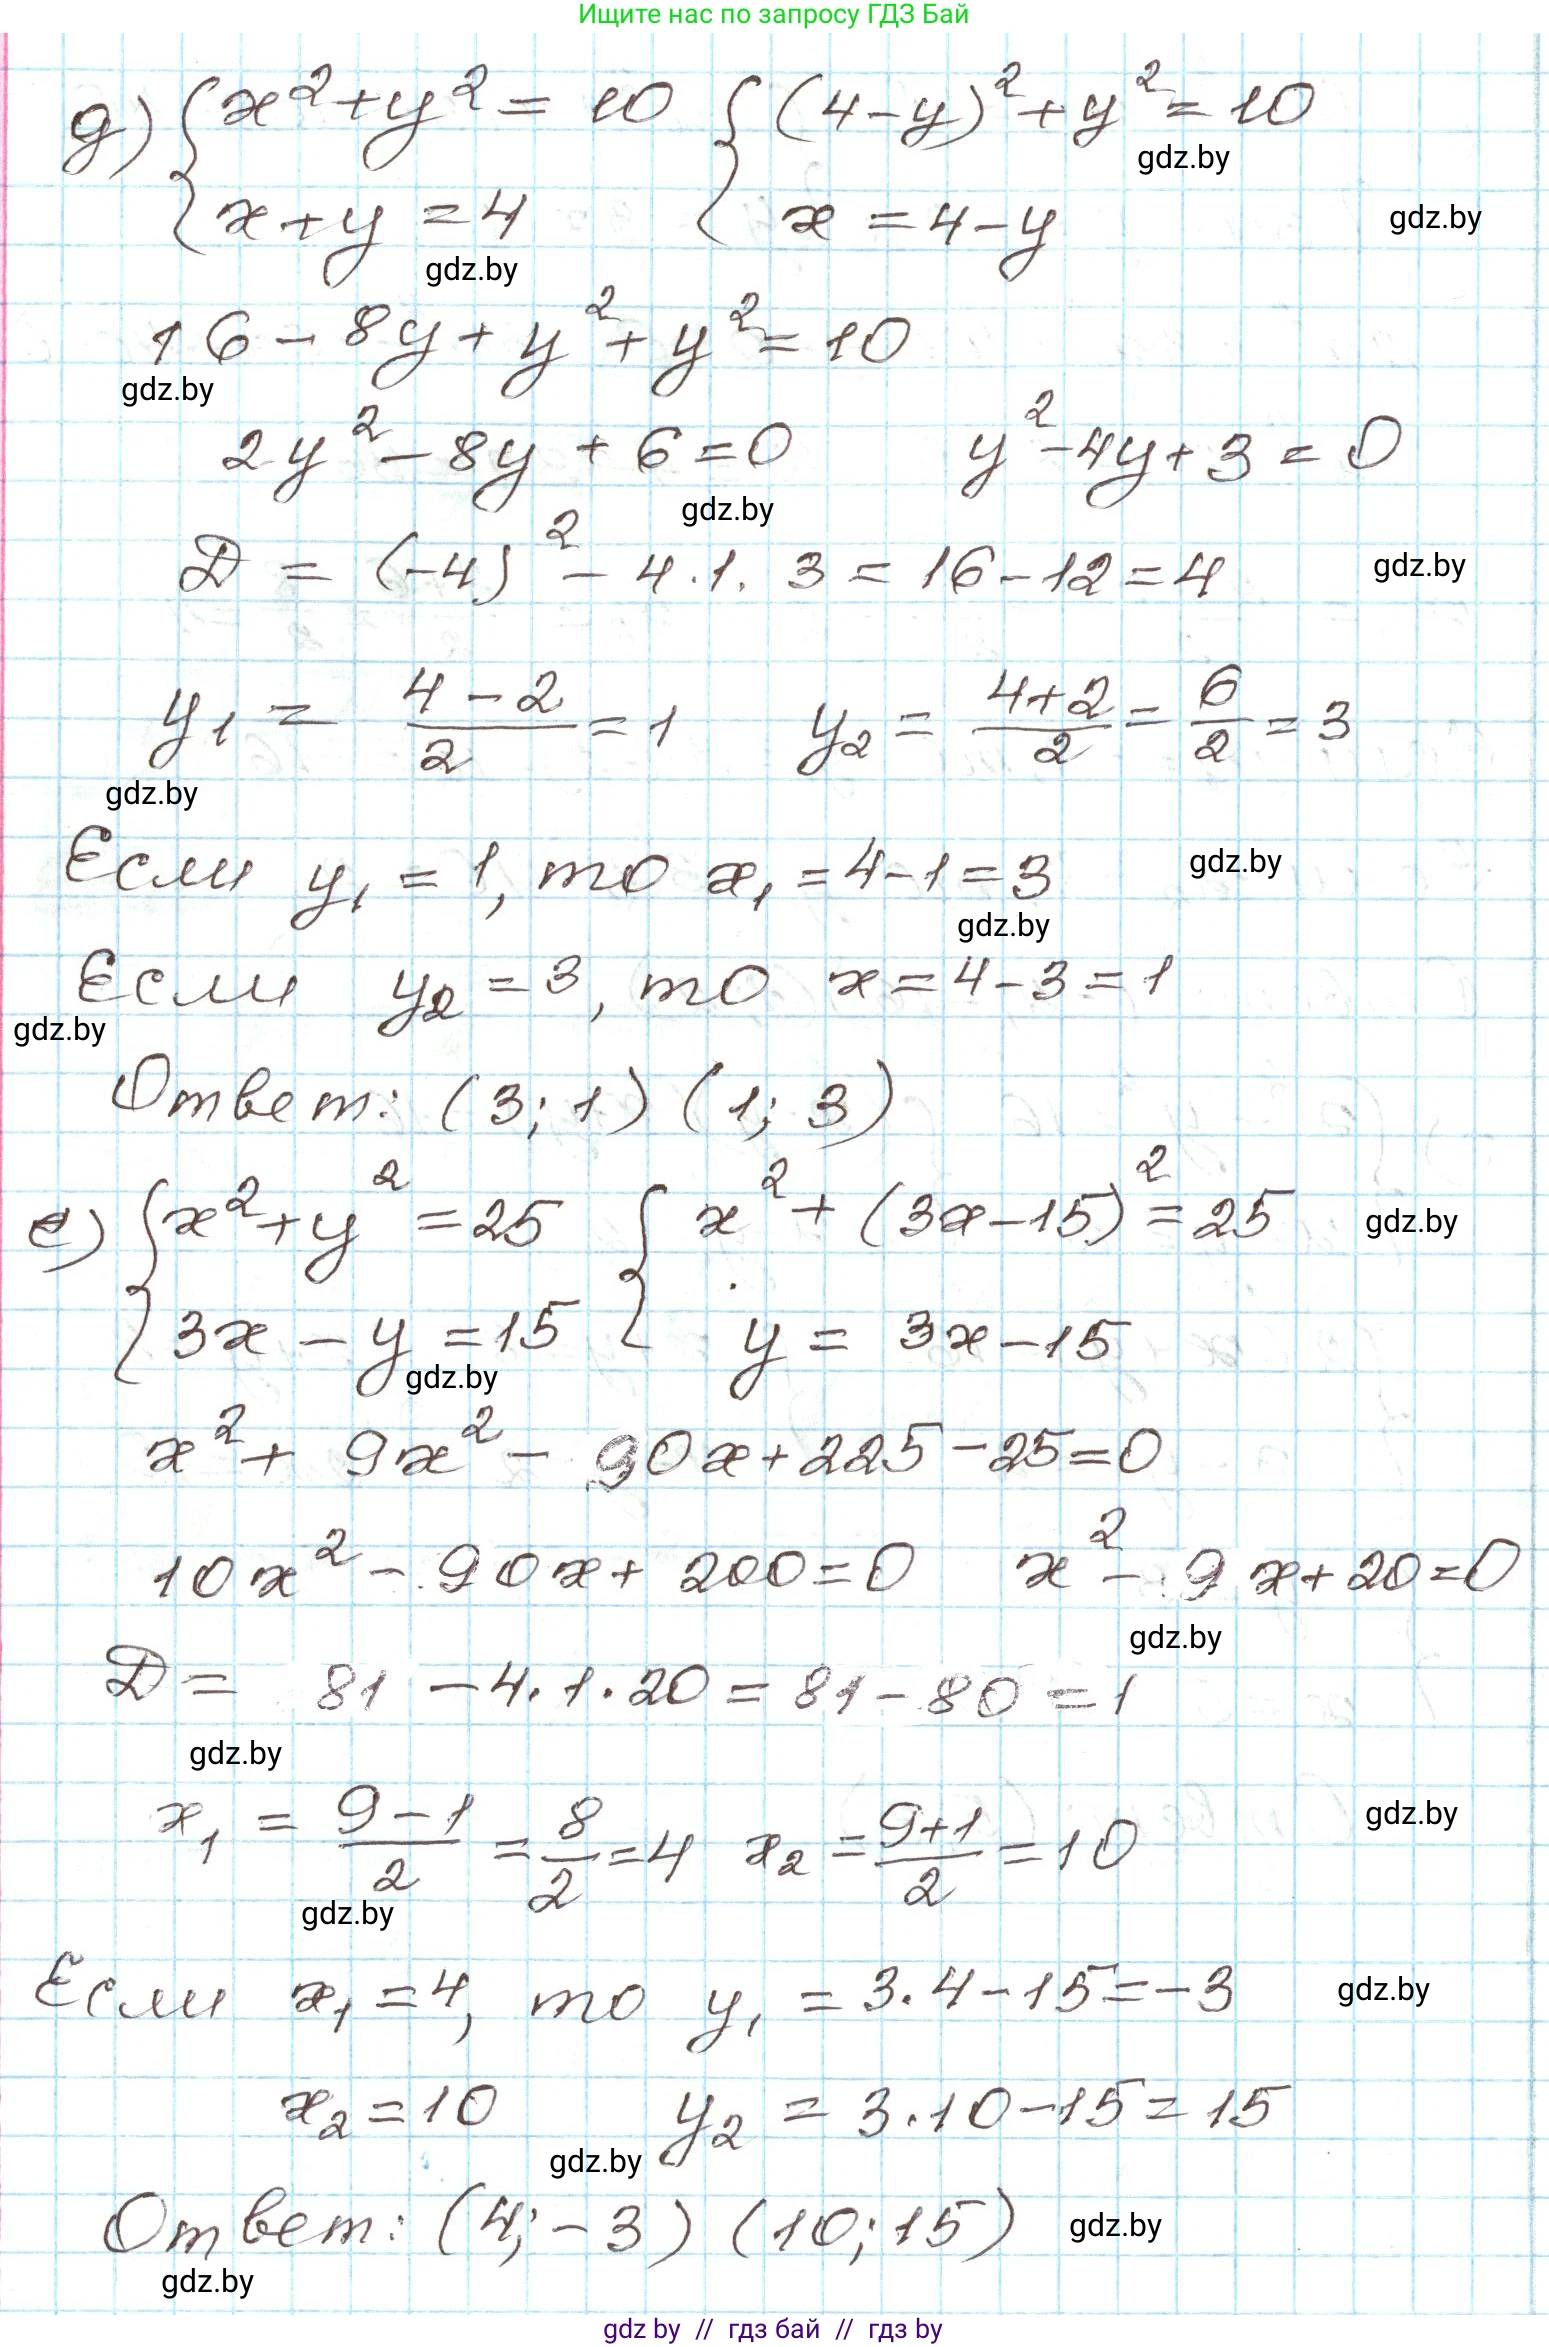 Ищите нас по запросу ГДЗ Бай
д) { x² + y² = 10 { (4 - y)² + y² = 10
gdz.by
{ x + y = 4 { x = 4 - y gdz.by
gdz.by
16 - 8y + y² + y² = 10
gdz.by
2y² - 8y + 6 = 0 y² - 4y + 3 = 0
gdz.by
D = (-4)² - 4 · 1 · 3 = 16 - 12 = 4 gdz.by
y₁ = (4 - 2)/2 = 1 y₂ = (4 + 2)/2 = 6/2 = 3
gdz.by
Если y₁ = 1, то x₁ = 4 - 1 = 3 gdz.by
gdz.by
Если y₂ = 3, то x = 4 - 3 = 1
gdz.by
Ответ: (3; 1) (1; 3)
е) { x² + y² = 25 { x² + (3x - 15)² = 25 gdz.by
{ 3x - y = 15 { y = 3x - 15
gdz.by
x² + 9x² - 90x + 225 - 25 = 0
10x² - 90x + 200 = 0 x² - 9x + 20 = 0
gdz.by
D = 81 - 4 · 1 · 20 = 81 - 80 = 1
gdz.by
x₁ = (9 - 1)/2 = 8/2 = 4 x₂ = (9 + 1)/2 = 10 gdz.by
gdz.by
Если x₁ = 4, то y₁ = 3 · 4 - 15 = -3 gdz.by
x₂ = 10 y₂ = 3 · 10 - 15 = 15
gdz.by
Ответ: (4; -3) (10; 15) gdz.by
gdz.by
gdz by // гдз бай // гдз by